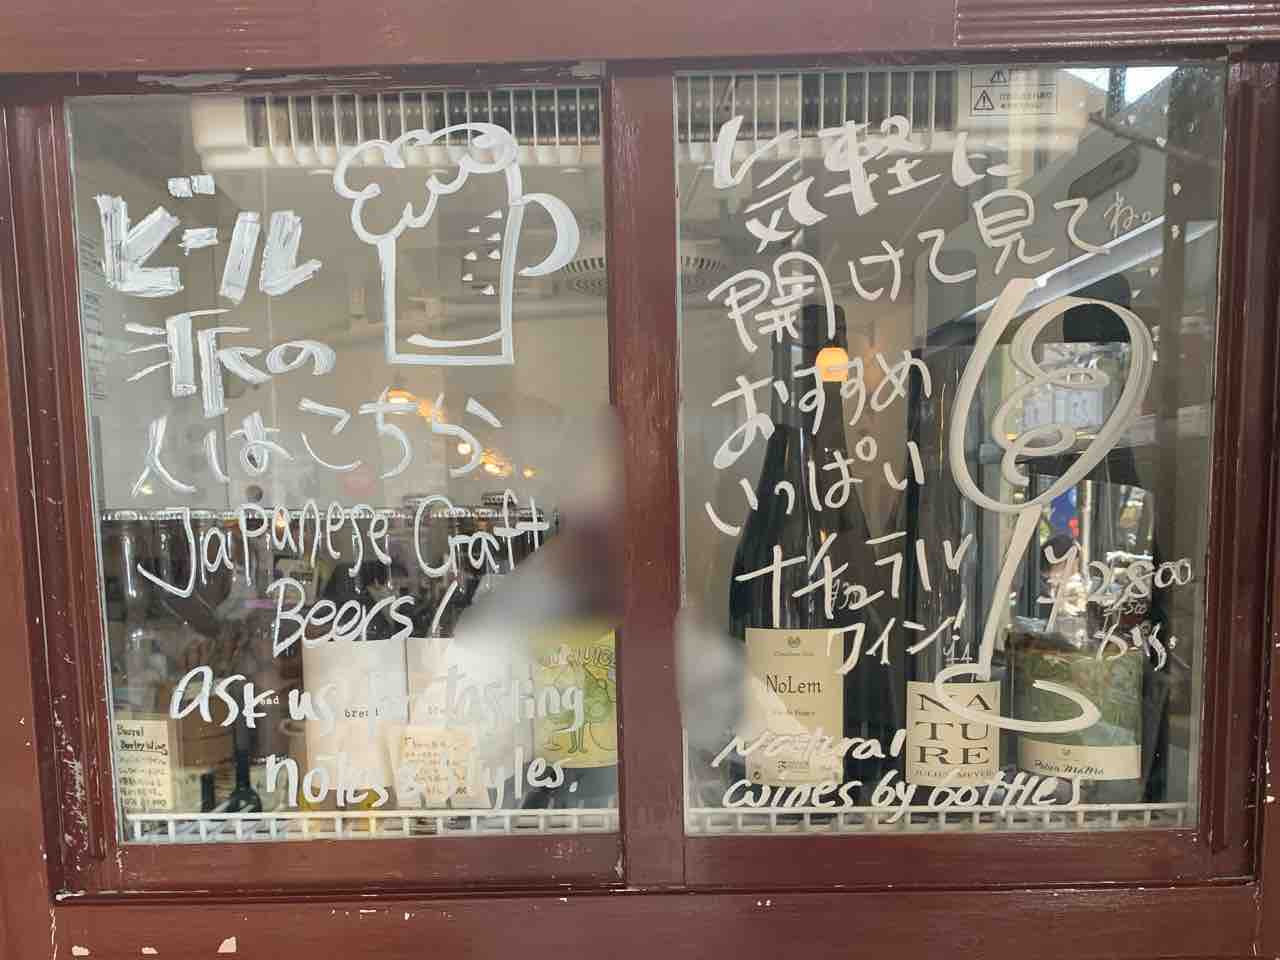 ビール
派の
人はこちら
Japanese Craft
Beers!
ask us for tasting
notes & styles.
Barrel
Barley Wine
bread
気軽に
開けて見てね。
おすすめ
いっぱい
ナチュラル
ワイン!
¥2,800
から
NoLem
NA
TU
RE
JULIEN MEYER
Natural
wines by bottles